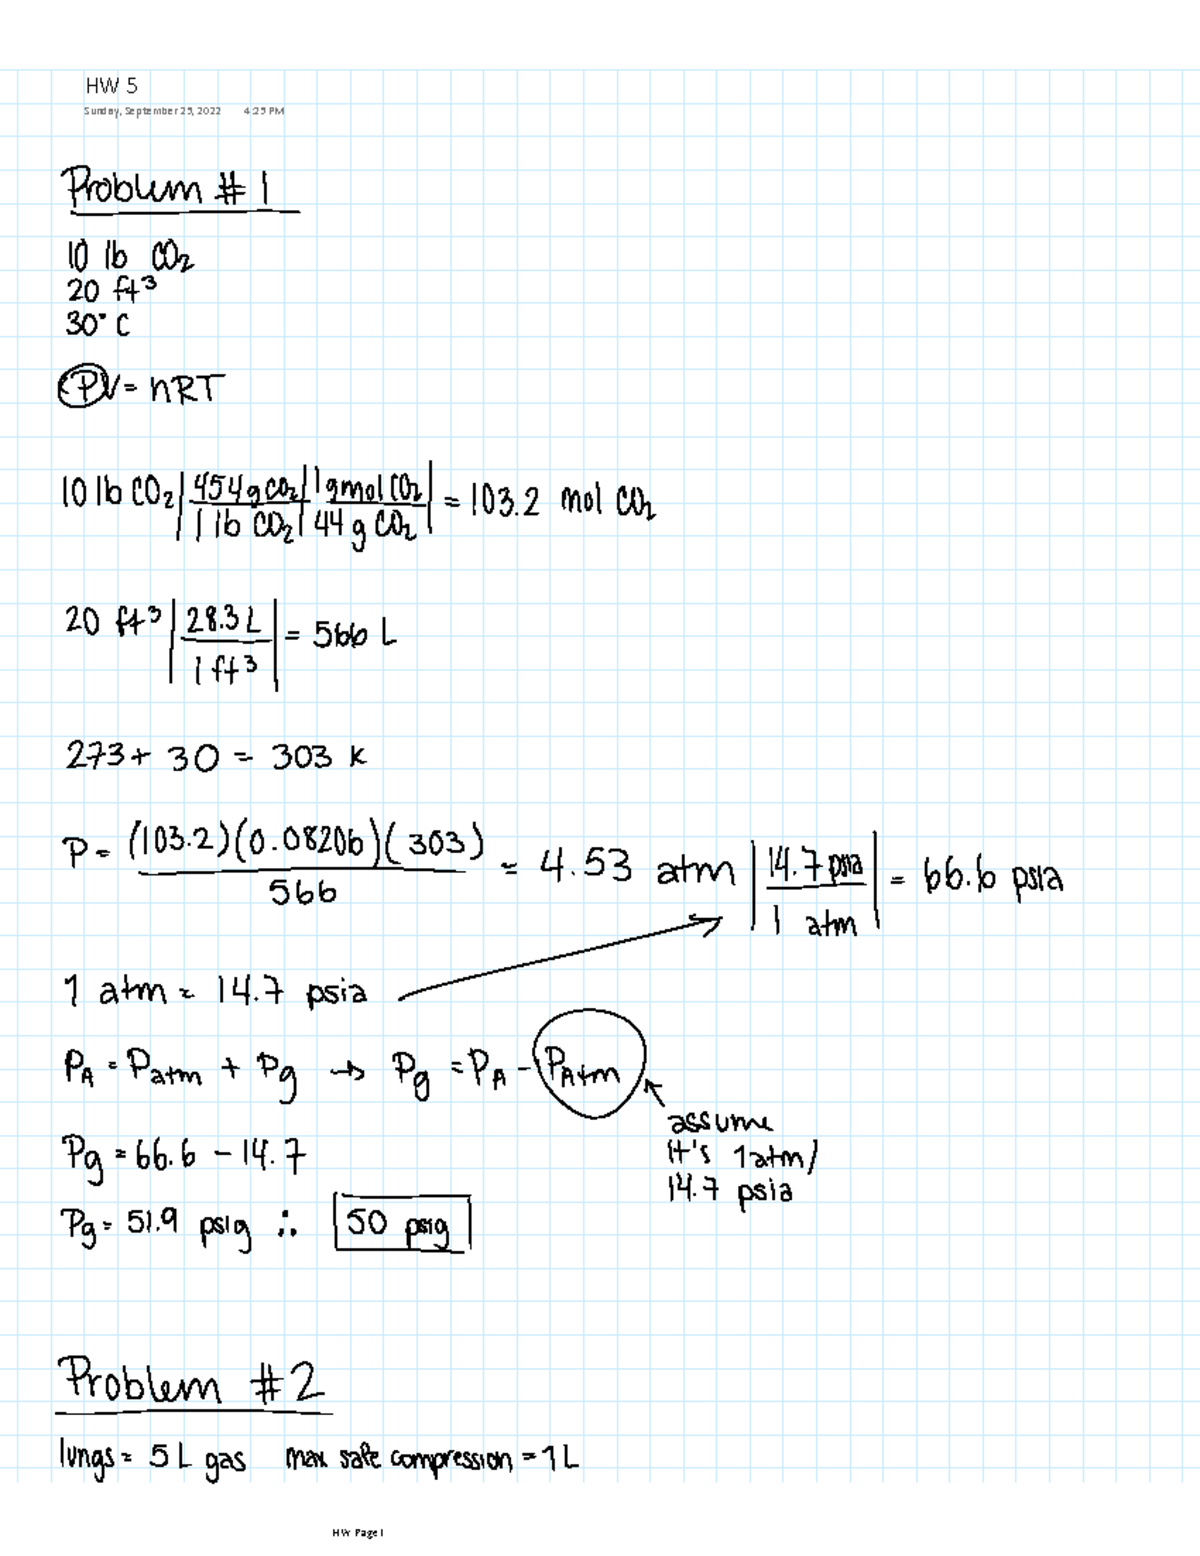 HW 5
Sunday, September 25, 2022 4:25 PM
Problem # 1
10 lb CO₂
20 ft³
30° C
PV = nRT
10 lb CO₂ | 454 g CO₂ / 1 lb CO₂ | 1 gmol CO₂ / 44 g CO₂ | = 103.2 mol CO₂
20 ft³ | 28.3 L / 1 ft³ | = 566 L
273 + 30 = 303 K
P = (103.2)(0.08206)(303) / 566 = 4.53 atm | 14.7 psia / 1 atm | = 66.6 psia
1 atm = 14.7 psia
P_A = P_atm + P_g → P_g = P_A - P_Atm
assume
it's 1 atm/
14.7 psia
P_g = 66.6 - 14.7
P_g = 51.9 psig ∴ 50 psig
Problem #2
lungs = 5 L gas max safe compression = 1 L
HW Page 1